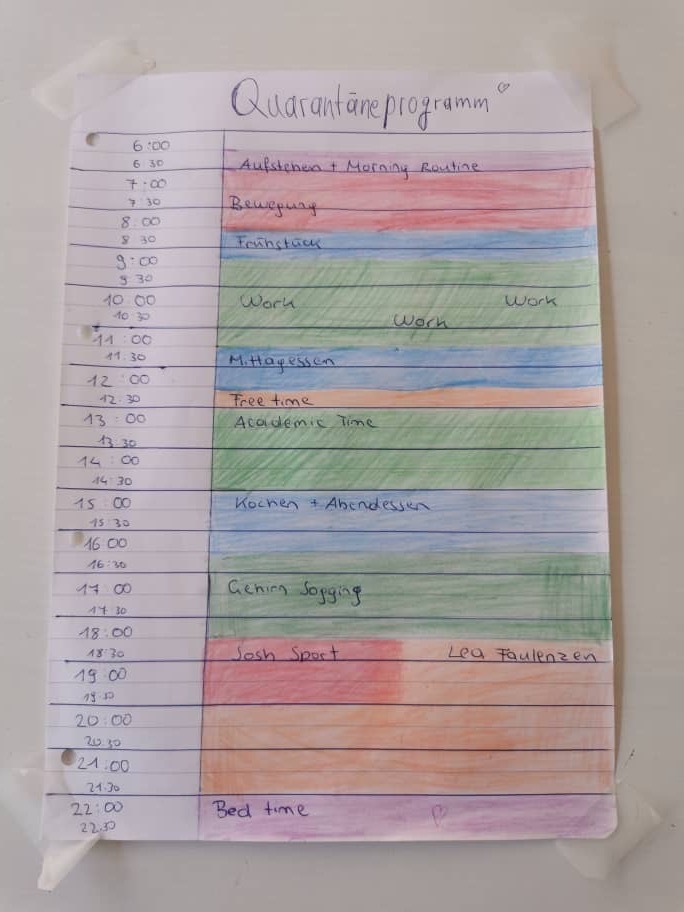 Quarantäneprogramm
6:00
6 30 Aufstehen + Morning Routine
7:00
7 30 Bewegung
8:00
8 30 Frühstück
9:00
9 30
10 00 Work Work
10 30 Work
11:00
11.30 Mittagessen
12:00
12:30 Free time
13:00 Academic Time
13:30
14:00
14:30
15:00 Kochen + Abendessen
15:30
16 00
16:30
17:00 Gehirn Jogging
17 30
18:00
18:30 Josh Sport Lea Faulenzen
19:00
19 30
20:00
20.30
21:00
21.30
22:00 Bed time
22.30